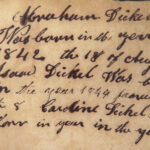 Abraham Dickel
Was born in the year
1842 the 18 of
Isaac Dickel Was
in the year 1844
& Caroline Dickel
Born in year in the ye